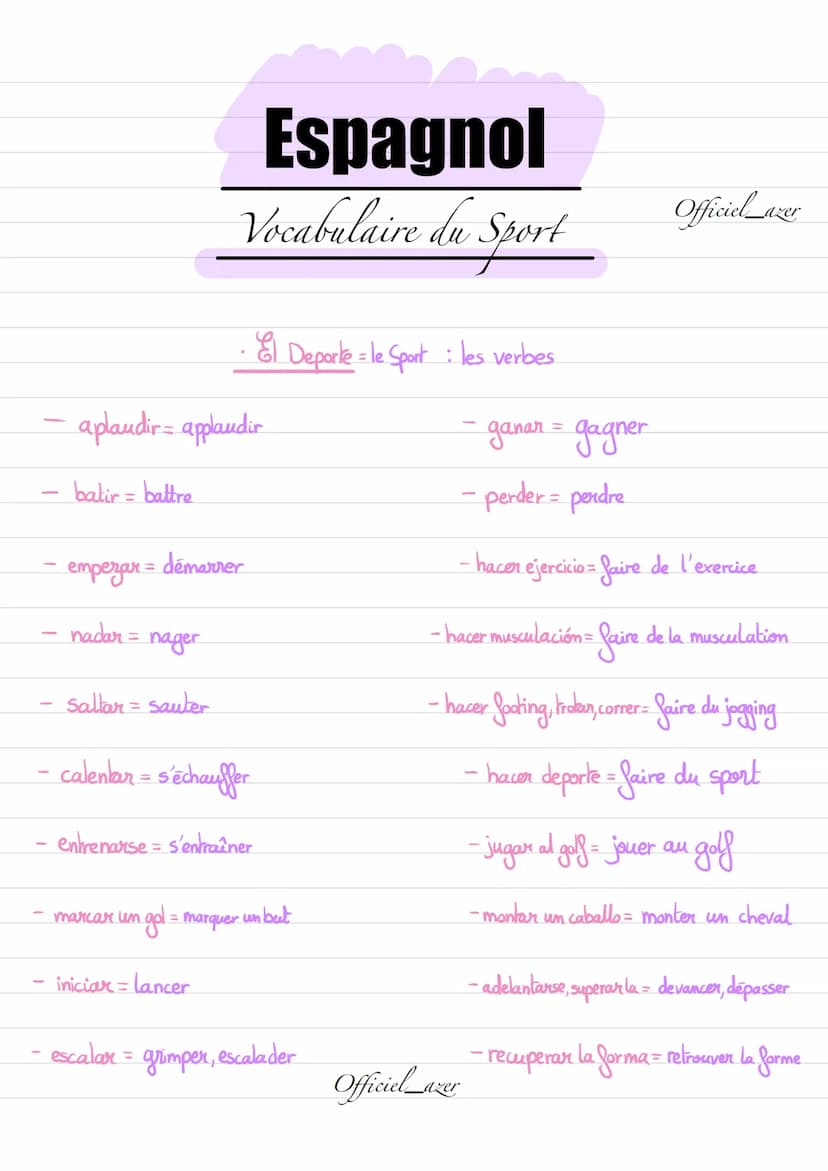 Espagnol
Vocabulaire du Sport
Officiel_azer
· El Deporte = le Sport : les verbes
- aplaudir = applaudir
- batir = battre
- empezar = démarrer
- nadar = nager
- saltar = sauter
- calentar = s'échauffer
- entrenarse = s'entraîner
- marcar un gol = marquer un but
- iniciar = lancer
- escalar = grimper, escalader
- ganar = gagner
- perder = perdre
- hacer ejercicio = faire de l'exercice
- hacer musculación = faire de la musculation
- hacer footing, trotar, correr = faire du jogging
- hacer deporte = faire du sport
- jugar al golf = jouer au golf
- montar un caballo = monter un cheval
- adelantarse, superar la = devancer, dépasser
- recuperar la forma = retrouver la forme
Officiel_azer